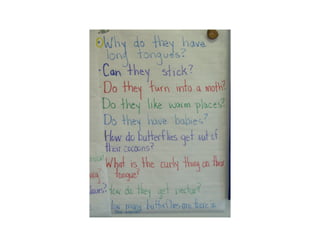 Why do they have
long tongues?
Can they stick?
Do they turn into a moth?
Do they like warm places?
Do they have babies?
How do butterflies get out of
their cocoons?
What is the curly thing on their
tongue?
How do they get nectar?
How many butterflies are there in